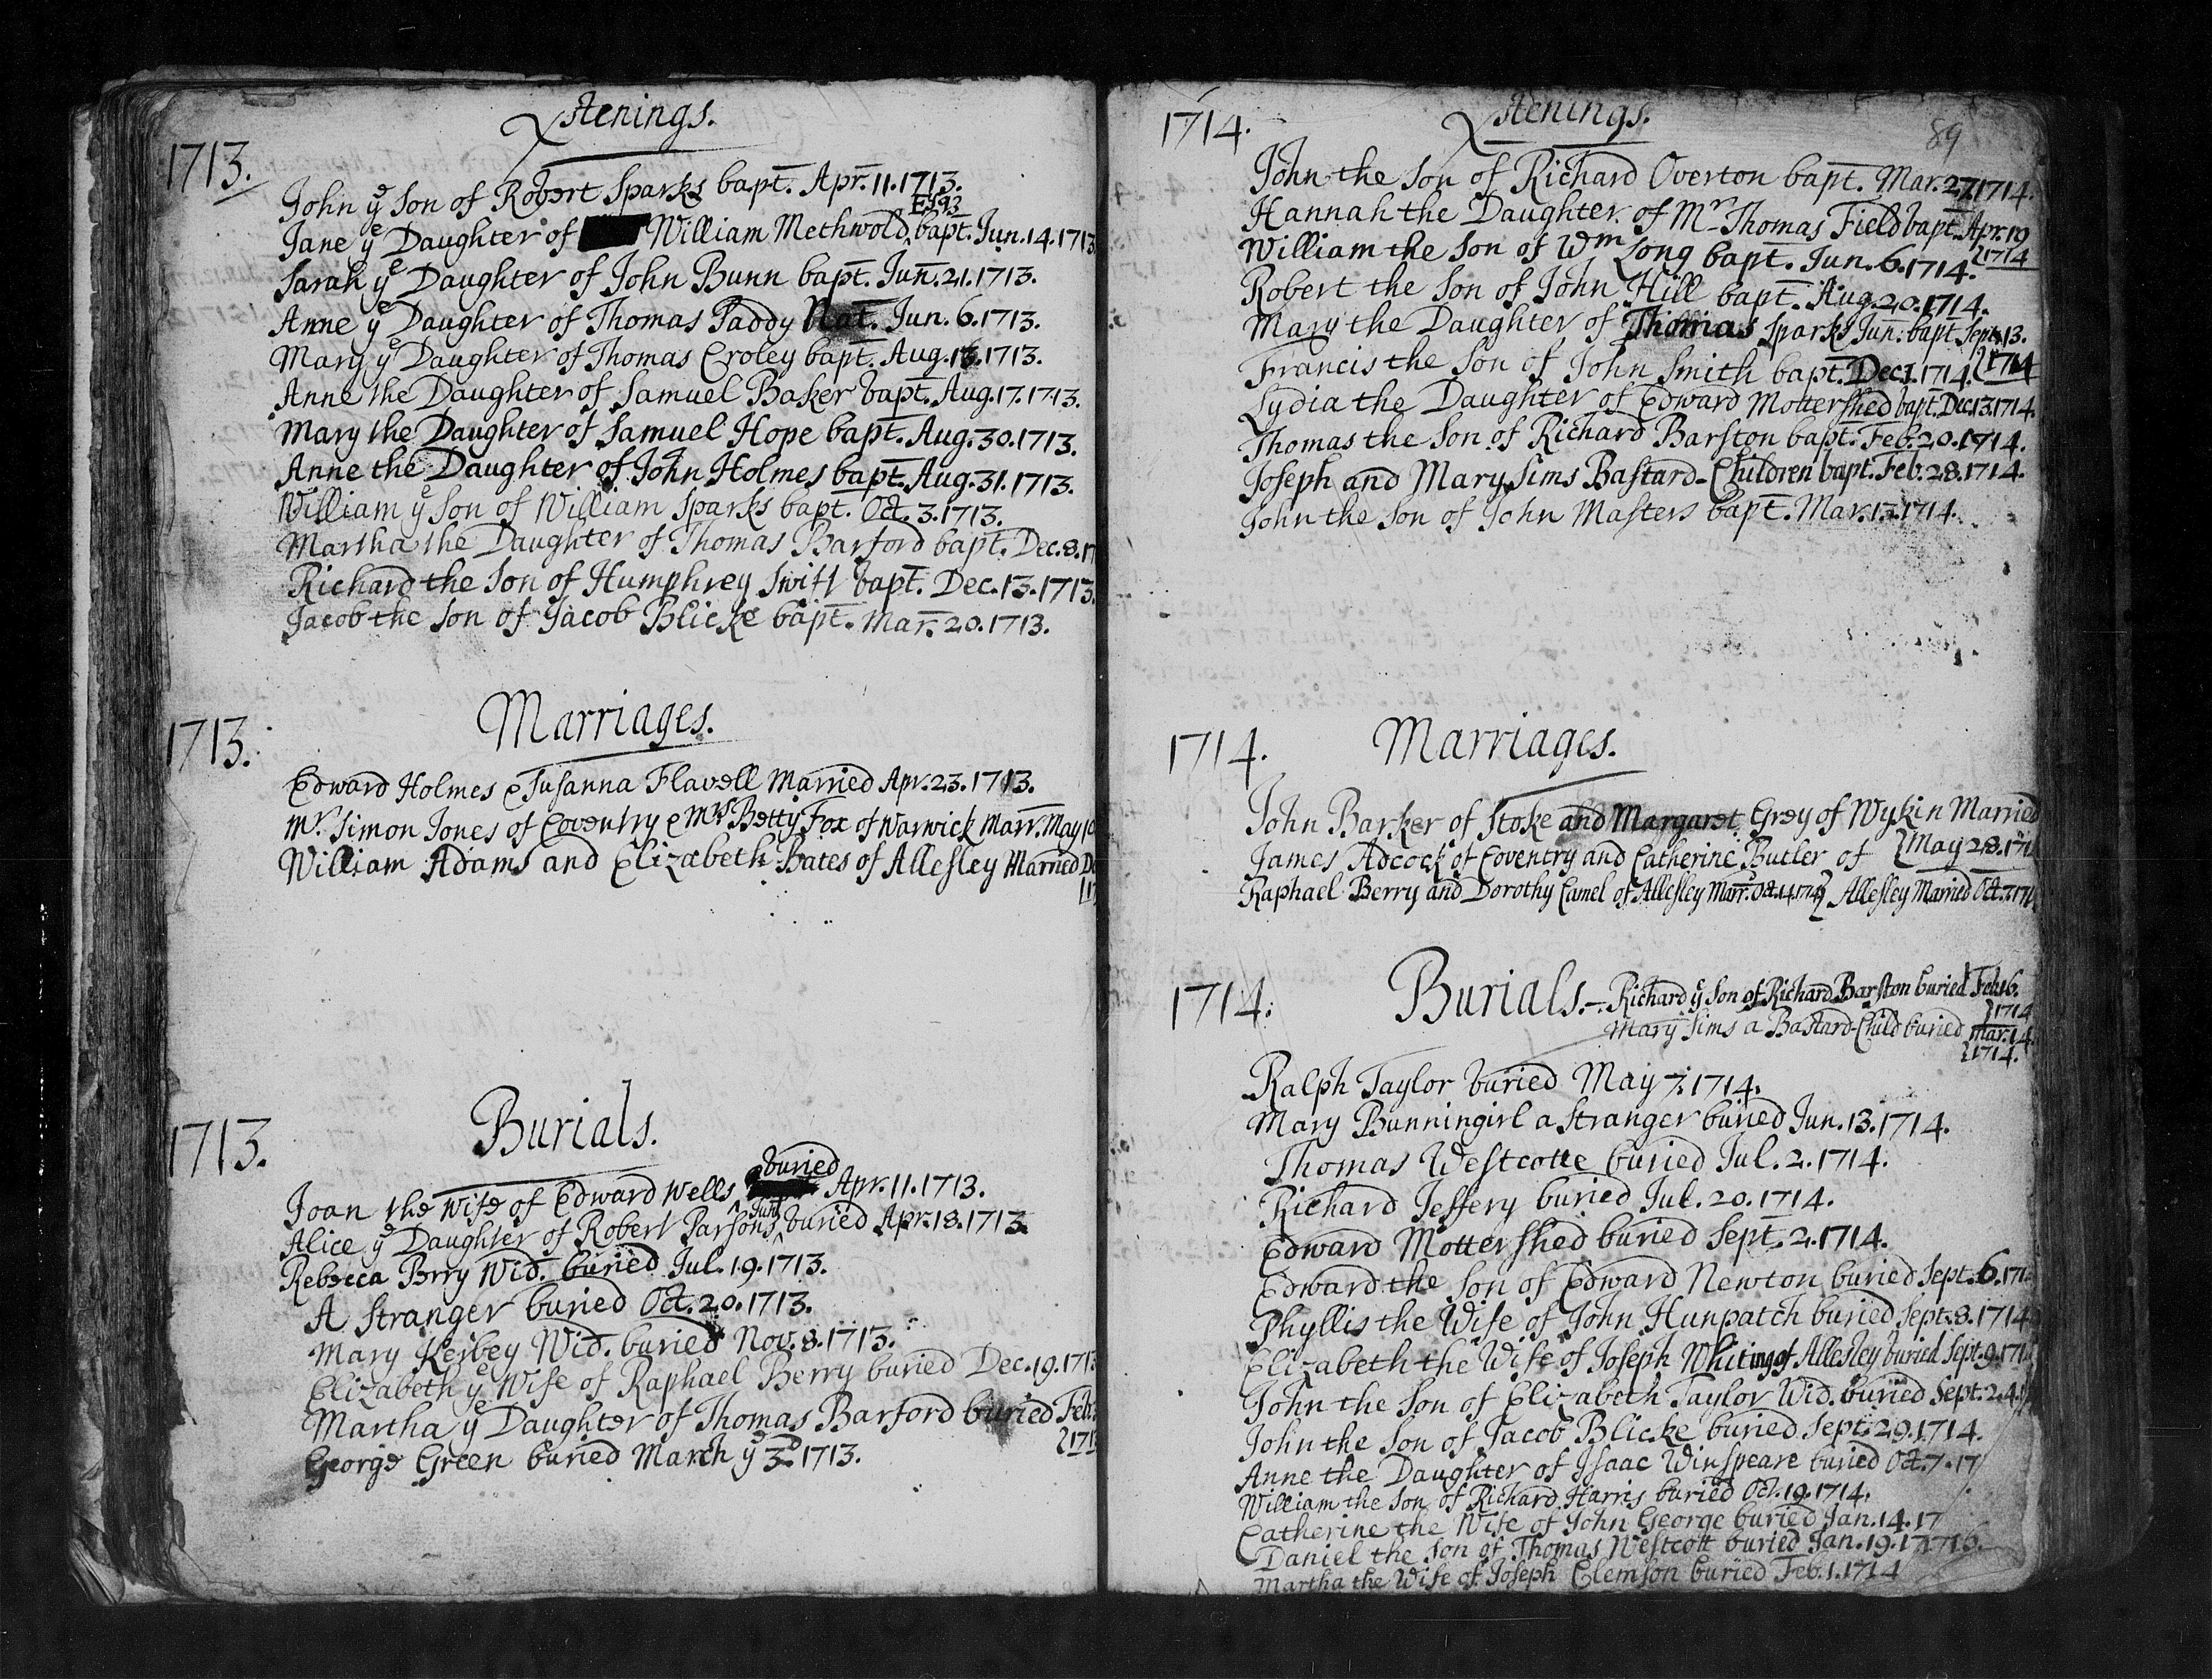 Xstenings.
1713.
John ye Son of Robert Sparks bapt. Apr. 11. 1713.
Esqr
Jane ye Daughter of William Methwold bapt. Jun. 14. 1713
Sarah ye Daughter of John Bunn bapt. Jun. 21. 1713.
Anne ye Daughter of Thomas Paddy Nat. Jun. 6. 1713.
Mary ye Daughter of Thomas Croley bapt. Aug. 1713.
Anne the Daughter of Samuel Baker bapt. Aug. 17. 1713.
Mary the Daughter of Samuel Hope bapt. Aug. 30. 1713.
Anne the Daughter of John Holmes bapt. Aug. 31. 1713.
William ye Son of William Sparks bapt. Oct. 3. 1713.
Martha the Daughter of Thomas Barford bapt. Dec. 8. 17
Richard the Son of Humphrey Swift bapt. Dec. 13. 1713.
Jacob the Son of Jacob Blicke bapt. Mar. 20. 1713.
Marriages.
1713.
Edward Holmes & Susanna Flavell Married Apr. 23. 1713.
Mr. Simon Jones of Coventry & Mrs Betty Fox of Warwick Marr. May
William Adams and Elizabeth Bates of Allesley Married
Burials.
1713.
buried
Joan the Wife of Edward Wells Apr. 11. 1713.
Junr
Alice ye Daughter of Robert Parsons buried Apr. 18. 1713.
Rebecca Perry Wid. buried Jul. 19. 1713.
A Stranger buried Oct. 20. 1713.
Mary Kerbey Wid. buried Nov. 8. 1713.
Elizabeth ye Wife of Raphael Berry buried Dec. 19. 1713
Martha ye Daughter of Thomas Barford buried Feb.
{171
George Green buried March ye 3d 1713.
Xstenings.
89
1714.
John the Son of Richard Overton bapt. Mar. 27. 1714.
Hannah the Daughter of Mr Thomas Field bapt. Apr. 19
{1714
William the Son of Wm Long bapt. Jun. 6. 1714.
Robert the Son of John Hill bapt. Aug. 20. 1714.
Mary the Daughter of Thomas Sparks Jun: bapt Sept. 13.
{1714
Francis the Son of John Smith bapt. Dec. 1. 1714.
Lydia the Daughter of Edward Mottershed bapt. Dec. 13. 1714.
Thomas the Son of Richard Barston bapt. Feb. 20. 1714.
Joseph and Mary Sims Bastard-Children bapt. Feb. 28. 1714.
John the Son of John Masters bapt. Mar. 13. 1714.
Marriages.
1714.
John Barker of Stoke and Margaret Grey of Wykin Married
{May 28. 171
James Adcock of Coventry and Catherine Butler of
Raphael Berry and Dorothy Camel of Allesley Marr. Oct. 14. 1714} Allesley Married Oct. 7. 171
Burials.
1714.
Richard ye Son of Richard Barston buried Feb. 16.
{1714
Mary Sims a Bastard-Child buried Mar. 14.
{1714.
Ralph Taylor buried May 7. 1714.
Mary Bunningirl a Stranger buried Jun. 13. 1714.
Thomas Westcotte buried Jul. 2. 1714.
Richard Jeffery buried Jul. 20. 1714.
Edward Mottershed buried Sept. 2. 1714.
Edward the Son of Edward Newton buried Sept. 6. 171
Phyllis the Wife of John Hunpatch buried Sept. 8. 1714
Elizabeth the Wife of Joseph Whiting of Allesley buried Sept. 9. 171
John the Son of Elizabeth Taylor Wid. buried Sept. 24.
John the Son of Jacob Blicke buried Sept. 29. 1714.
Anne the Daughter of Isaac Winspeare buried Oct. 7. 17
William the Son of Richard Harris buried Oct. 19. 1714.
Catherine the Wife of John George buried Jan. 14. 17
Daniel the Son of Thomas Westcott buried Jan. 19.
Martha the Wife of Joseph Clemson buried Feb. 1. 1714